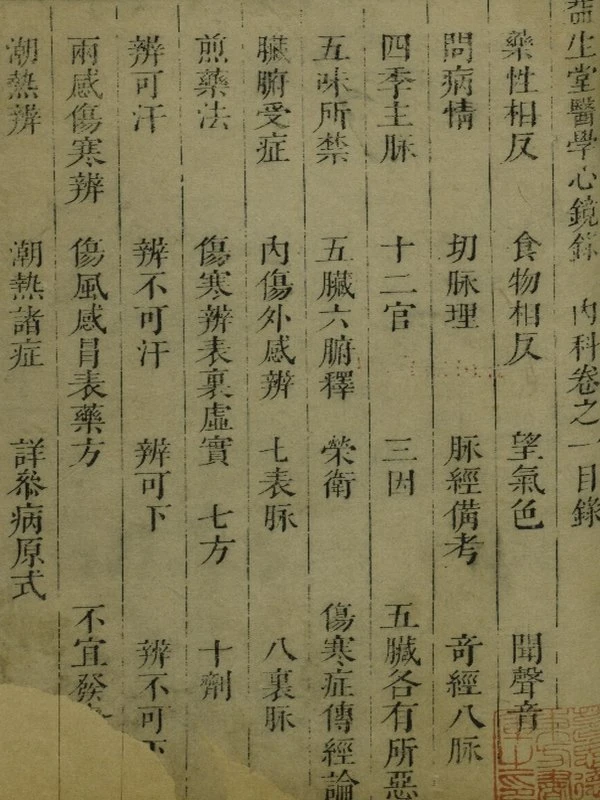 生堂醫學心鏡錄 內科卷之一目錄
藥性相反 食物相反 望氣色 聞聲音
問病情 切脉理 脉經備考 奇經八脉
四季主脉 十二官 三因 五臟各有所惡
五味所禁 五臟六腑釋 榮衛 傷寒症傳經論
臟腑受症 內傷外感辨 七表脉 八裏脉
煎藥法 傷寒辨表裏虛實 七方 十劑
辨可汗 辨不可汗 辨可下 辨不可下
兩感傷寒辨 傷風感冐表藥方 不宜發
潮熱辨 潮熱諸症 詳叅病原式